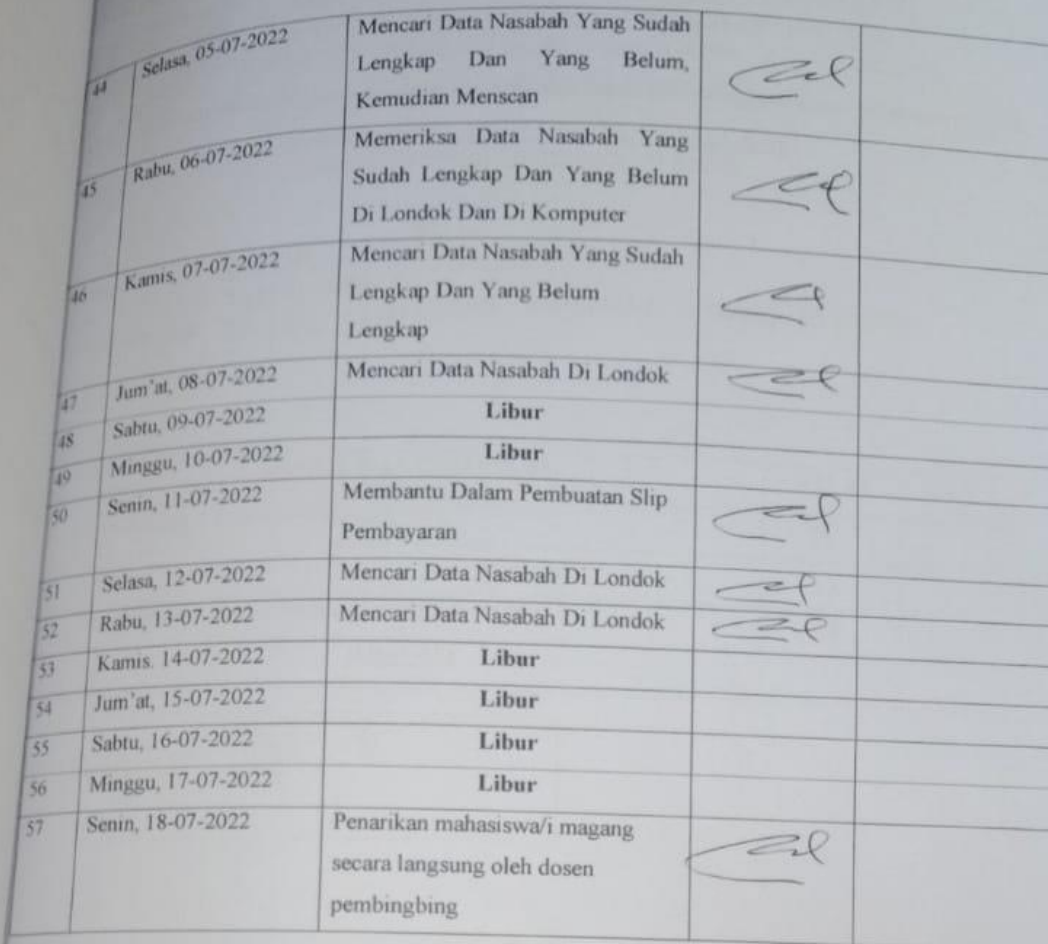 44 Selasa, 05-07-2022 Mencari Data Nasabah Yang Sudah
Lengkap Dan Yang Belum,
Kemudian Menscan
45 Rabu, 06-07-2022 Memeriksa Data Nasabah Yang
Sudah Lengkap Dan Yang Belum
Di Londok Dan Di Komputer
46 Kamis, 07-07-2022 Mencari Data Nasabah Yang Sudah
Lengkap Dan Yang Belum
Lengkap
47 Jum'at, 08-07-2022 Mencari Data Nasabah Di Londok
48 Sabtu, 09-07-2022 Libur
49 Minggu, 10-07-2022 Libur
50 Senin, 11-07-2022 Membantu Dalam Pembuatan Slip
Pembayaran
51 Selasa, 12-07-2022 Mencari Data Nasabah Di Londok
52 Rabu, 13-07-2022 Mencari Data Nasabah Di Londok
53 Kamis. 14-07-2022 Libur
54 Jum'at, 15-07-2022 Libur
55 Sabtu, 16-07-2022 Libur
56 Minggu, 17-07-2022 Libur
57 Senin, 18-07-2022 Penarikan mahasiswa/i magang
secara langsung oleh dosen
pembingbing